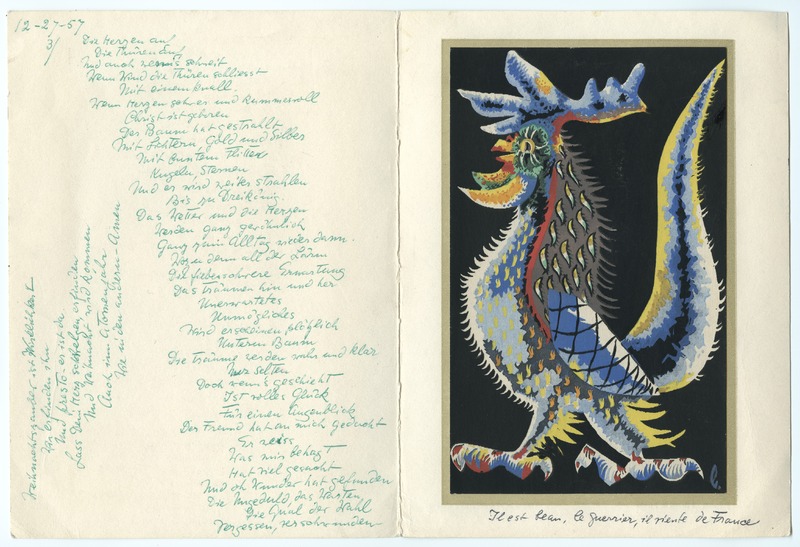 12-27-57
3/
Die Herzen auf
Die Thüren auf
Und auch wenn's schneit
Wenn Wind die Thüren schliesst
Mit einem Knall.
Wenn Herzen schwer und kummervoll
Christ ist geboren
Der Baum hat gestrahlt
Mit Lichtern, Gold und Silber
Mit buntem Flitter
Kugeln, Sternen
Und er wird weiter strahlen
Bis zu Dreikönig.
Das Wetter und die Herzen
Werden ganz gewöhnlich
Ganz zum Alltag wieder dann.
Wozu denn all der Lärm
Die fieberschwere Erwartung
Das Träumen hin und her
Unerwartetes
Unmögliches
Wird erscheinen plötzlich
Unterm Baum
Die Träume werden wahr und klar
Nur selten
Doch wenn's geschieht
Ist volles Glück
Für einen Augenblick
Der Freund hat an mich gedacht
Er weiss
Was mir behagt
Hat viel gesucht
Und oh Wunder hat gefunden
Die Ungeduld, das Warten
Die Qual der Wahl
Vergessen, verschwunden
Weihnachtszauber wo
erfinden ihn
Und presto - er ist da
Lass Dein Herz erfinden
Und Weihnacht wird kommen
Auch im Atomenjahr
Wie in den andern - Amen
Il est beau, le guerrier, il vient de France